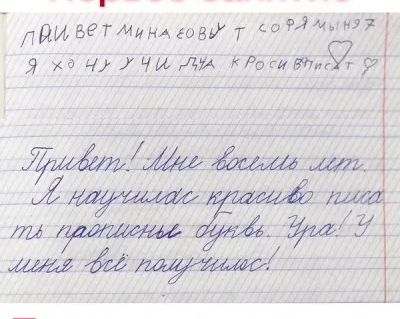 ПРИВЕТ МИНАЗОВУТ СОФЯ МЫНЭ 7
Я ХОЧУ УЧИДЦА КРОСИВПИСАТ
Привет! Мне восемь лет.
Я научилас красиво писа
ть прописные буквы. Ура! У
меня всё получилос!